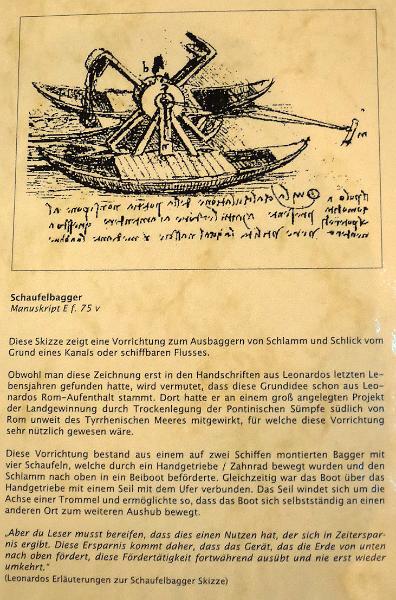 b
Schaufelbagger
Manuskript E f. 75 v
Diese Skizze zeigt eine Vorrichtung zum Ausbaggern von Schlamm und Schlick vom
Grund eines Kanals oder schiffbaren Flusses.
Obwohl man diese Zeichnung erst in den Handschriften aus Leonardos letzten Le-
bensjahren gefunden hatte, wird vermutet, dass diese Grundidee schon aus Leo-
nardos Rom-Aufenthalt stammt. Dort hatte er an einem groß angelegten Projekt
der Landgewinnung durch Trockenlegung der Pontinischen Sümpfe südlich von
Rom unweit des Tyrrhenischen Meeres mitgewirkt, für welche diese Vorrichtung
sehr nützlich gewesen wäre.
Diese Vorrichtung bestand aus einem auf zwei Schiffen montierten Bagger mit
vier Schaufeln, welche durch ein Handgetriebe / Zahnrad bewegt wurden und den
Schlamm nach oben in ein Beiboot beförderte. Gleichzeitig war das Boot über das
Handgetriebe mit einem Seil mit dem Ufer verbunden. Das Seil windet sich um die
Achse einer Trommel und ermöglichte so, dass das Boot sich selbstständig an einen
anderen Ort zum weiteren Aushub bewegt.
„Aber du Leser musst bereifen, dass dies einen Nutzen hat, der sich in Zeiterspar-
nis ergibt. Diese Ersparnis kommt daher, dass das Gerät, das die Erde von unten
nach oben fördert, diese Fördertätigkeit fortwährend ausübt und nie erst wieder
umkehrt."
(Leonardos Erläuterungen zur Schaufelbagger Skizze)